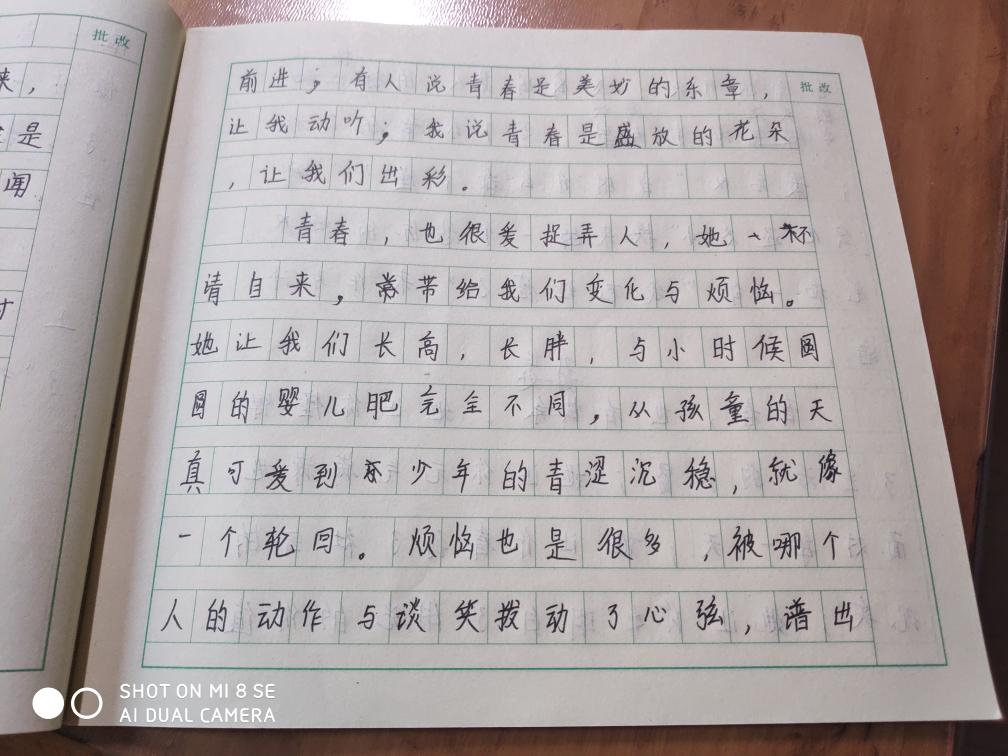 批改
来，
是
闻
批改
前进；有人说青春是美妙的乐章，
让我动听；我说青春是盛放的花朵
，让我们出彩。
青春，也很爱捉弄人，她
请自来，常带给我们变化与烦恼。
她让我们长高，长胖，与小时候圆
圆的婴儿肥完全不同，从孩童的天
真可爱到 少年的青涩沉稳，就像
一个轮回。烦恼也是很多，被哪个
人的动作与谈笑拨动了心弦，谱出
SHOT ON MI 8 SE
AI DUAL CAMERA